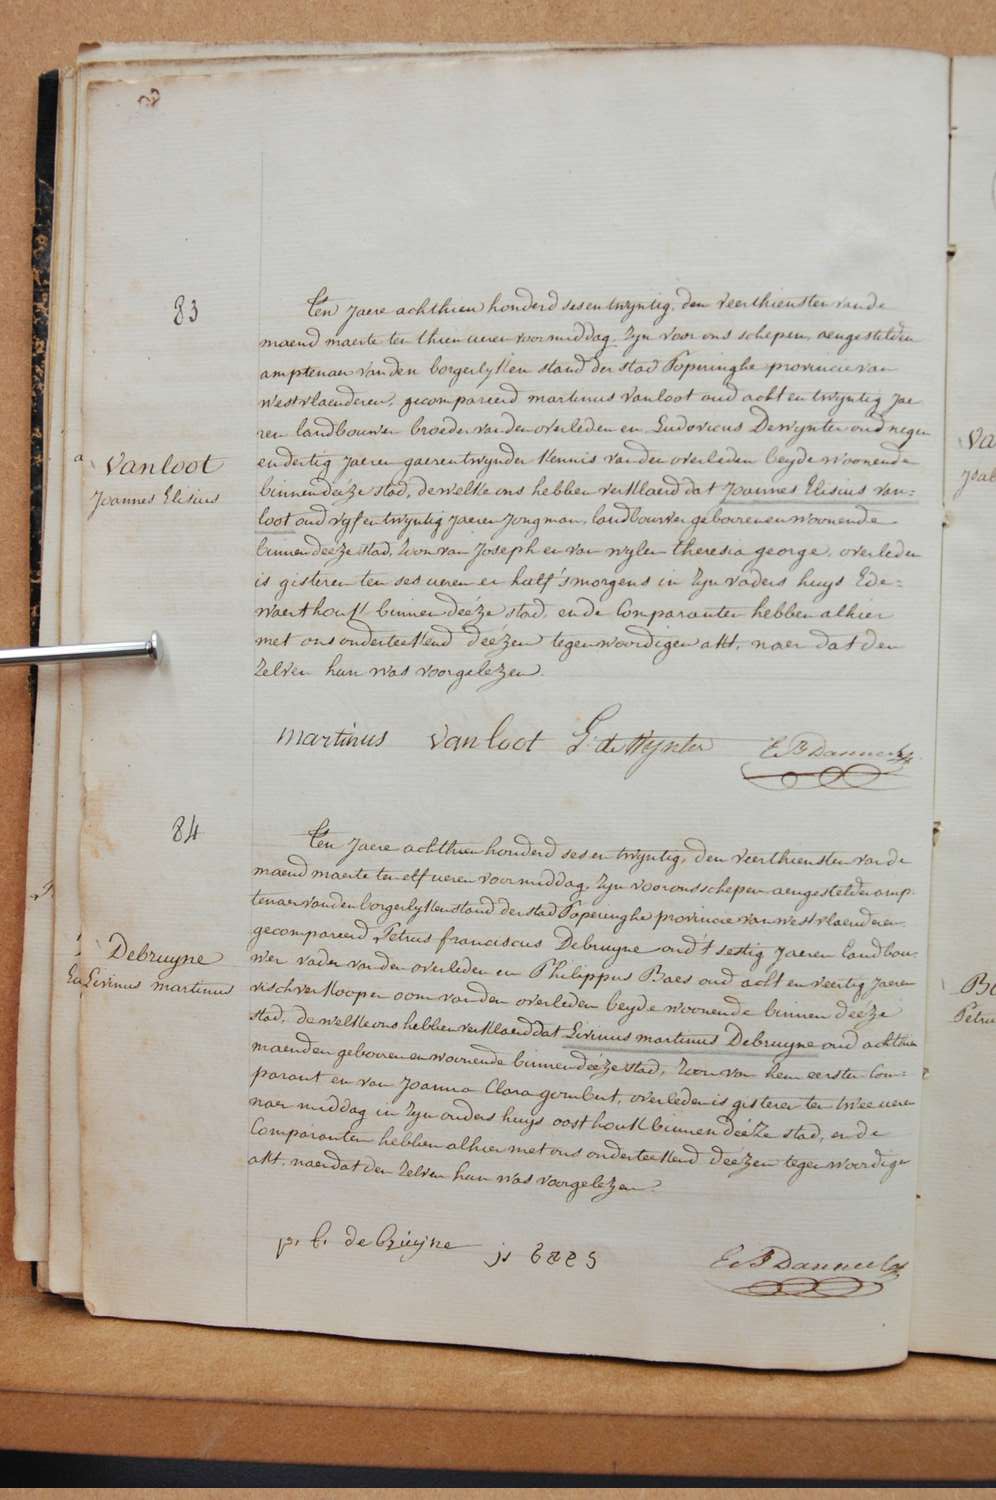 83
Ten Jaere achthien honderd sesen twyntig, den veerthiensten vande
maend maerte ten thien ueren voormiddag Zyn voor ons schepen, aengestelden
amptenaer van den borgerlyken stand der stad Poperinghe provincie van
westvlaenderen, gecompareerd martinus vanloot oud acht en twyntig Jae
ren landbouwer broeder van den overleden en Ludovicus Dewynter oud negen
en dertig Jaeren gaerentwynder kennis van den overleden beyde woonende
Vanloot
Joannes Elisius
binnen deéze stad, dewelke ons hebben verklaerd dat Joannes Elisius van=
loot oud vyf en twyntig Jaeren Jongman, landbouwer gebooren en woonende
binnen deéze stad, Zoon van Joseph en van wylen theresia george, overleden
is gisteren ten ses ueren en half 'smorgens in Zyn vaders huys Ede=
waerthoek binnen deéze stad, ende Comparanten hebben alhier
met ons onderteekend deézen tegenwoordigen akt, naer dat den
Zelven hun was voorgelezen.
martinus vanloot L. de Wynter
84
Ten Jaere achthien honderd sesen twyntig, den veerthiensten van de
maend maerte ten elf ueren voormiddag, Zyn voor ons schepen aengestelden amp
tenaer van den borgerlyken stand der stad Poperinghe provincie van westvlaenderen
gecompareerd Petrus franciscus Debruyne oud 't sestig Jaeren landbou
wer vader van den overleden en Philippus Baes oud acht en veertig Jaeren
Debruyne
Livinus martinus
vischverkooper oom van den overleden beyde woonende binnen deéze
stad, dewelke ons hebben verklaerd dat Livinus martinus Debruyne oud achthien
maenden gebooren en woonende binnen deéze stad, Zoon van hem eersten Com=
parant en van Joanna Clara gombert, overleden is gisteren ten twee ueren
naer middag in Zyn ouders huys oosthoek binnen deéze stad, ende
Comparanten hebben alhier met ons onderteekend deézen tegenwoordigen
akt, naerdat den Zelven hun was voorgelezen.
p. f. de bruyne